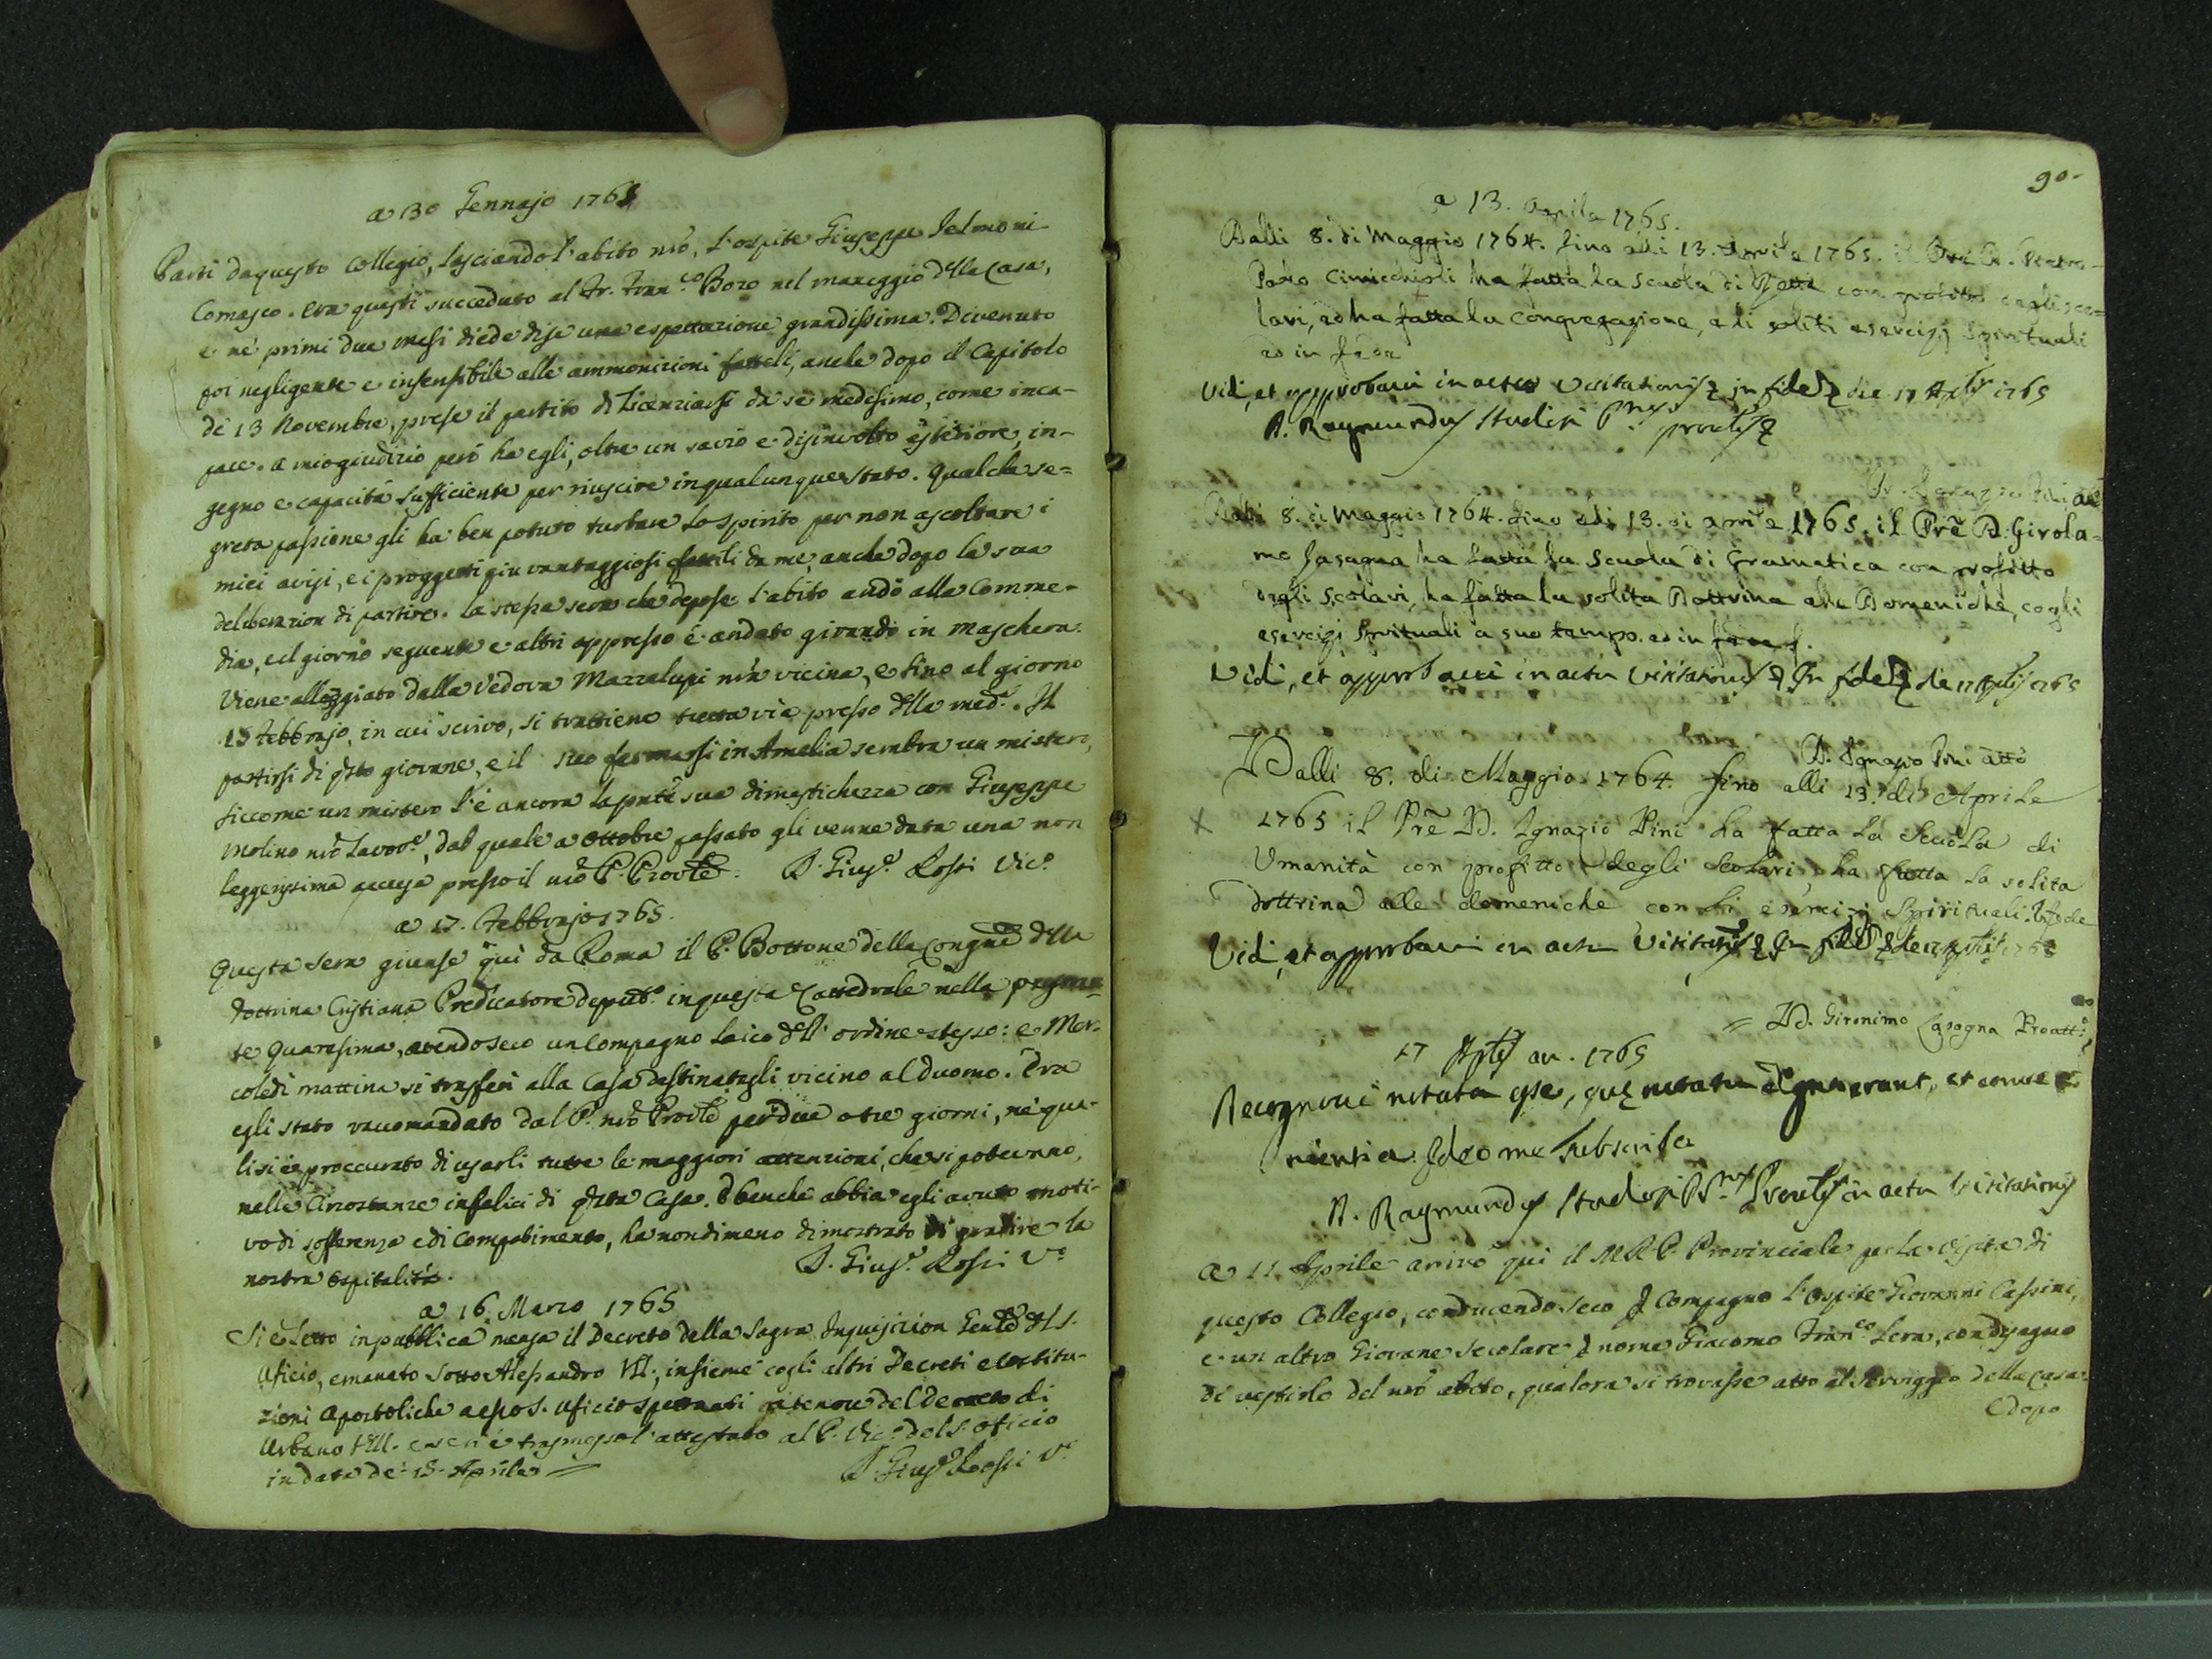 a 30 Gennajo 1765
Partì da questo Collegio, lasciando l'abito nrõ, l'ospite Giuseppe Jelmoni
Comasco. era questi succeduto al Fr. Fran.co Bozo nel maneggio della Casa,
e ne' primi due mesi diede di se una espettazione grandissima. Divenuto
poi negligente e insensibile alle ammonizioni fatteli, anche dopo il Capitolo
de' 13 Novembre, prese il partito di Licenziarsi da se medesimo, come inca-
pace. a mio giudizio però ha egli, oltre un savio e disinvolto esteriore, in-
gegno e capacità sufficiente per riuscire in qualunque stato. Qualche se=
greta passione gli ha ben potuto turbare lo spirito per non ascoltare i
miei avisi, e i proggetti più vantaggiosi fattili da me, anche dopo la sua
deliberazion di partire. La stessa sera che depose l'abito andò alla Comme-
dia, e il giorno seguente e altri appresso è andato girando in maschera.
Viene alloggiato dalla Vedova Mazzalupi nrã vicina, e fino al giorno
15 Febbrajo, in cui scrivo, si trattiene tutta via presso della med.a. Il
partirsi di qsto giovane, e il suo fermarsi in Amelia sembra un mistero,
siccome un mistero l'è ancora la pnte sua dimestichezza con Giuseppe
Molino nrõ Lavor.e, dal quale a Ottobre passato gli venne data una non
leggerissima accusa presso il nrõ P. Provle. D. Gius.e Rossi Vic.o
a 17. Febbrajo 1765.
Questa sera giunse quì da Roma il P. Bottone della Congne della
Dottrina Cristiana Predicatore deput.o in questa Cattedrale nella prossi-
te Quaresima, avendo seco un Compagno laico dell'ordine stesso: e Mer-
coledì mattina si trasferì alla Casa destinatagli vicino al Duomo. Era
egli stato raccomandato dal P. nrõ Provle per due o tre giorni, ne' qua-
li si è proccurato di usarli tutte le maggiori attenzioni, che si potevano,
nelle circostanze infelici di qsta Casa. E benchè abbia egli avuto moti-
vo di sofferenza e di compatimento, ha nondimeno dimostrato di gradire la
nostra ospitalità. D. Gius.e Rossi V.o
a 16. Marzo 1765
Si è Letto in pubblica mensa il Decreto della Sagra Inquisizion Genle del S.
Uficio, emanato sotto Alessandro VII., insieme cogli altri Decreti e Costitu-
zioni Apostoliche a esso S. Uficio spettanti a tenore del Decreto di
Urbano VIII. e se n'è trasmesso l'attestato al P. Vic.o del S. Oficio
in data de' 15. Aprile D. Gius.e Rossi V.o
90.
a 13. Aprile 1765.
Dalli 8. di Maggio 1764. fino alli 13. Aprile 1765. il Pre D. Pietro
Paolo Cimicchioli ha fatta la Scuola di con profitto degli sco=
lari, ed ha fatta la Congregazione, e li soliti esercizj Spirituali
ed in fede
Vidi, et approbavi in actu Visitationis in fidem die 17 Aplis 1765
D. Raymundus Studiosi provlis
D. Ignazio Pini att
Dalli 8. di Maggio 1764. fino alli 13. di Aprile 1765. il Prẽ D. Girola=
mo Casagna ha fatta la Scuola di Gramatica con profitto
degli Scolari, ha fatta la solita Dottrina alle Domeniche, cogli
esercizj Spirituali a suo tempo. ed in fede
Vidi, et approbavi in actu Visitationis In fidem die 17 Aplis 1765
D. Ignazio Pini atto
Dalli 8. di Maggio 1764. fino alli 13. di Aprile
X 1765 il Prẽ D. Ignazio Pini ha fatta la Scuola di
Umanità con profitto degli Scolari, ha fatta la solita
dottrina alle domeniche con li esercizj Spirituali. In fede
Vidi, et approbavi in actu Visitationis In fidem die 17 Aplis 1765
= D. Gironimo Casogna Proatt.o
17 Aplis an. 1765
Recognovi notata quae notatu digna erant, et
Ideo me Subscripsi
D. Raymundus Studiosi Provlis in actu Visitationis
A 11 Aprile arrivò quì il M. R. P. Provinciale per la visita di
questo Collegio, conducendo seco p Compagno l'ospite Giovanni Cassini,
e un altro Giovane secolare p nome Giacomo Fran.co Lera, con disegno
di vestirlo del nrõ abito, qualora si trovasse atto al serviggio della casa.
E dopo